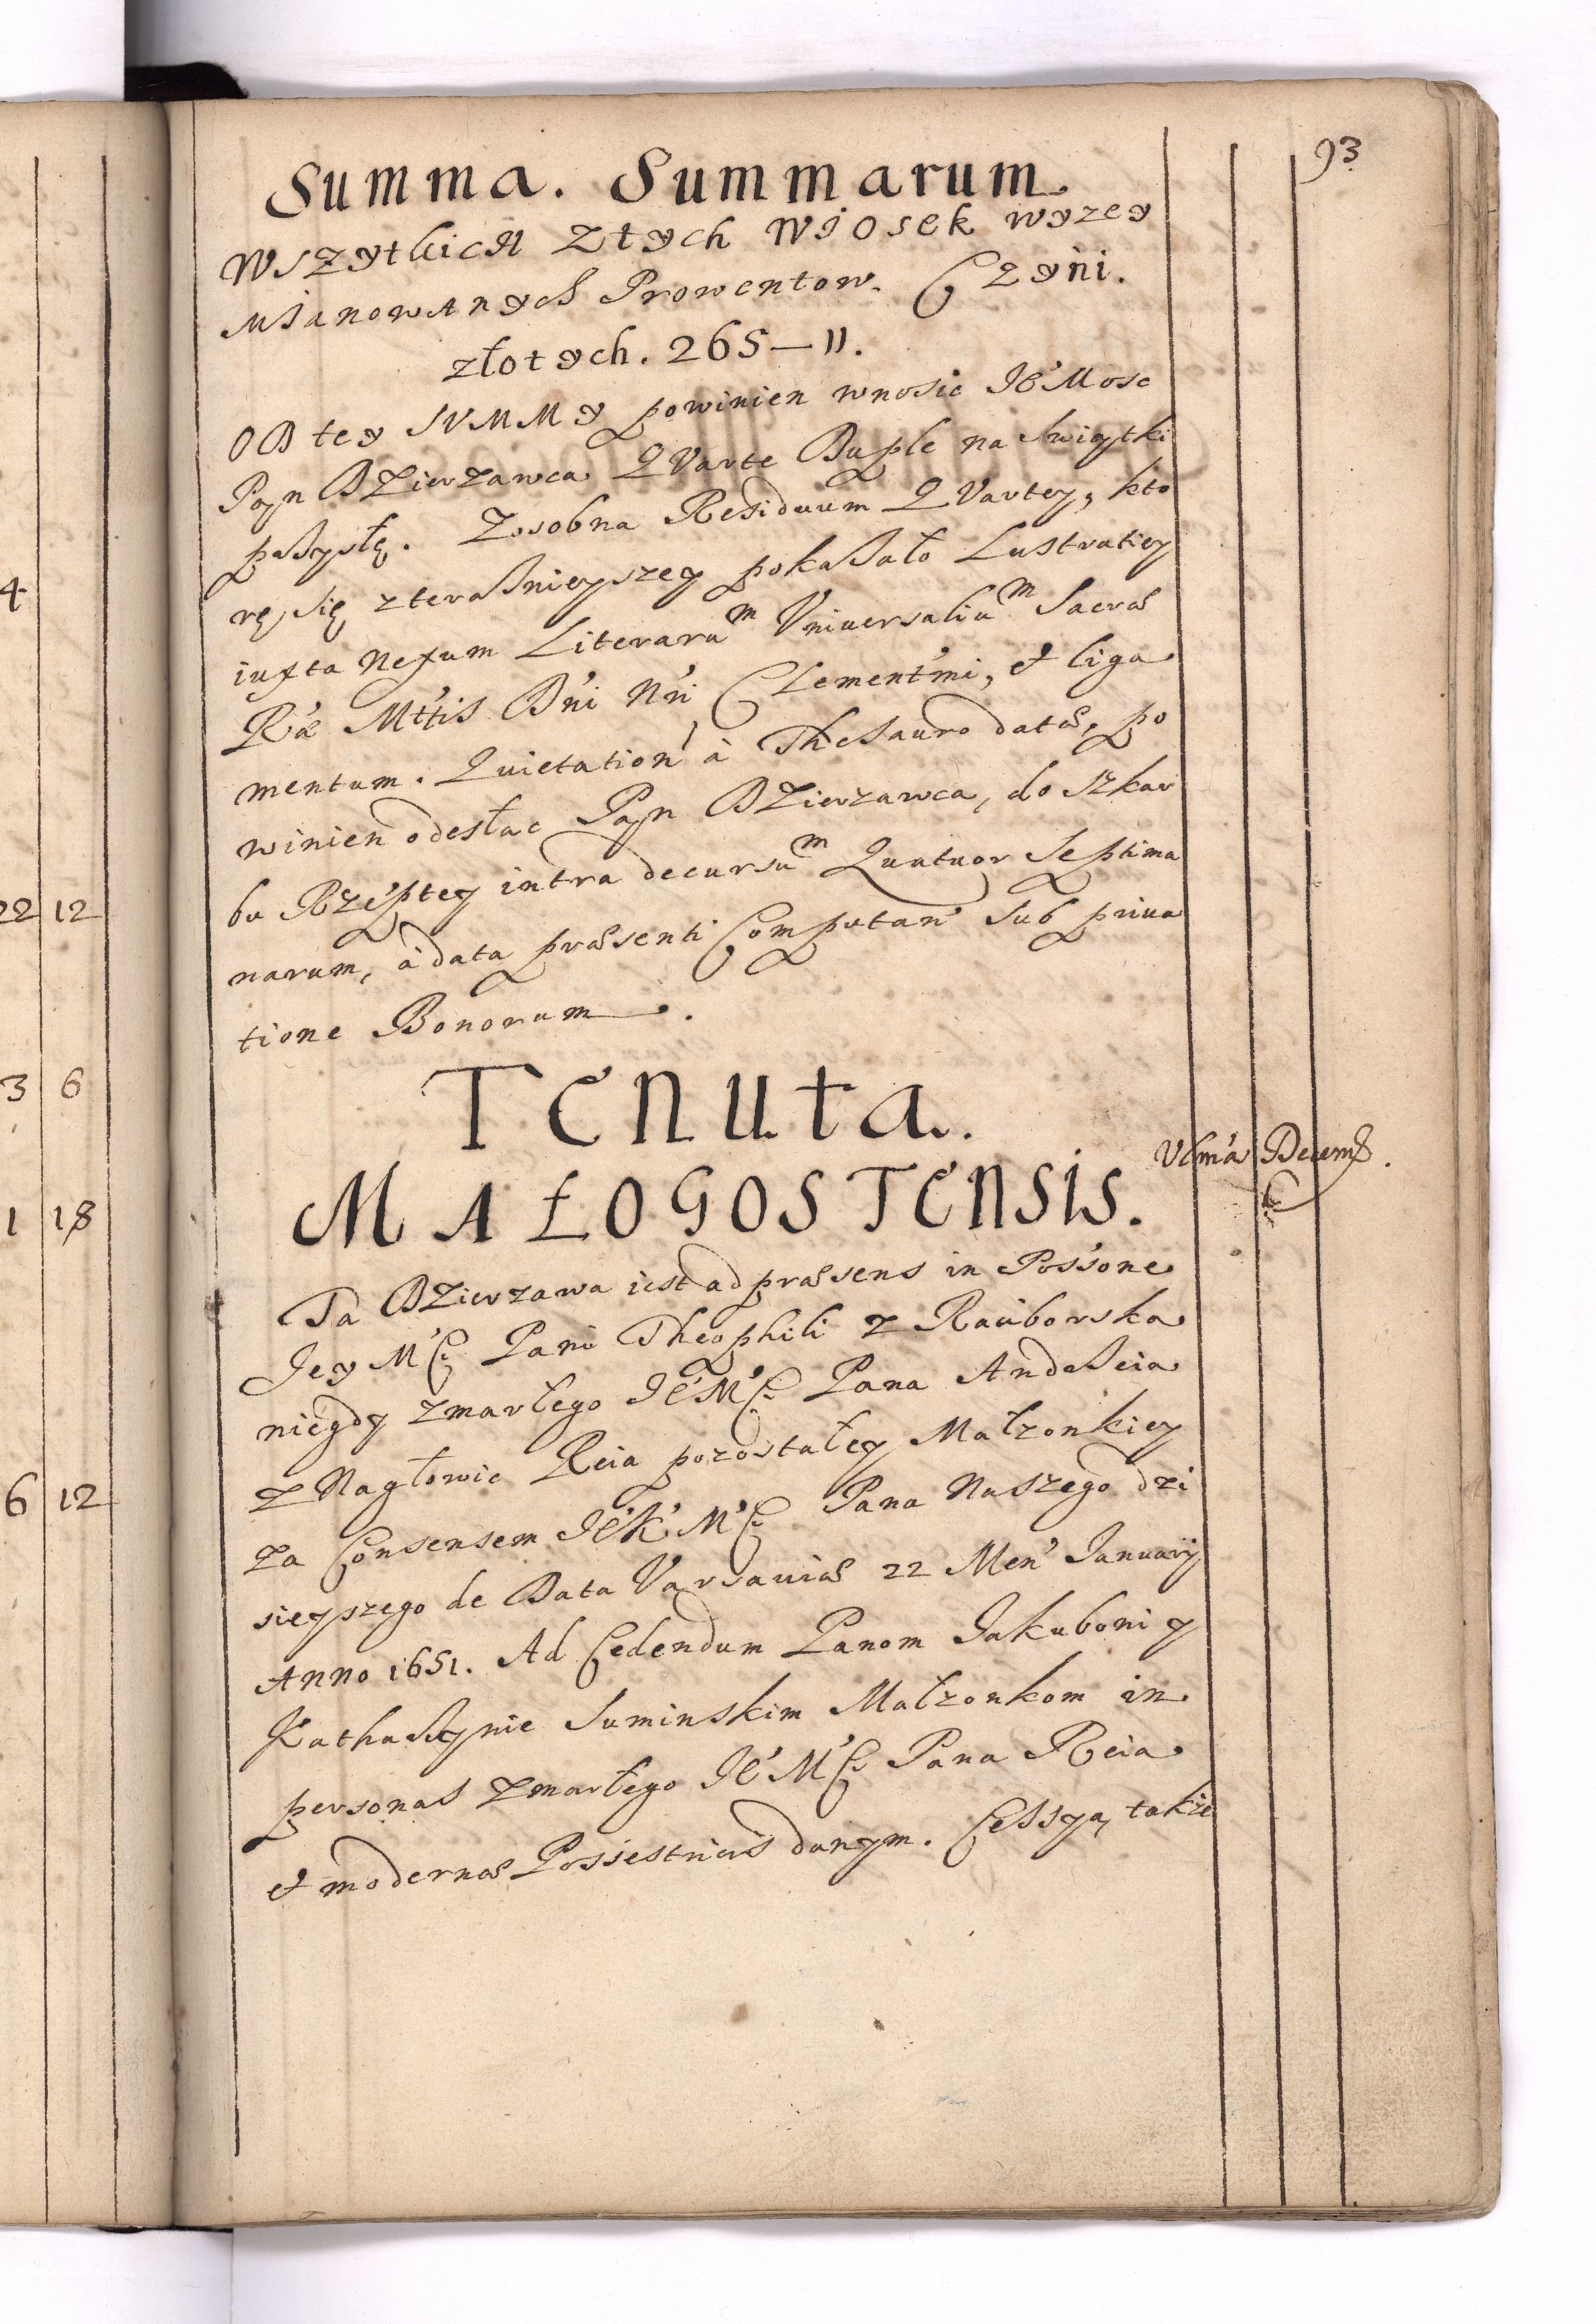 93
Summa. Summarum.
Wszytkich z tych Wiosek wyzey
Mianowanych Prowentow. Czyni.
złotych. 265—11.
OD tey SVMMy powinien wnosic Je'Mosc
Pan Dzierzawca QVarte Duple na Swiątki
przyszłę. Zosobna Residuum QVartey, kto
rę się z teraznieyszey pokazało Lustratiey
iuxta Nexum Literaru^m Vniuersaliu^m Sacræ
Ræ M'ttis D'ni N'ri Clement'mi, et liga
mentum. Quietation' à Thesauro datæ, po
winien odesłac Pan Dzierzawca, do Szkar
bu Rzeptey intra decursu^m Quatuor Septima
narum, à data præsenti Computan' sub priua
tione Bonorum.
Tenuta.
MAŁOGOSTENSIS.
Vltm'a Decemb.
Ta Dzierzawa iest ad præsens in Poss'one
Jey M'C Pani Theophili z Raciborska
niegdy zmarłego Je'M'C Pana Andrzeia
z Nagłowic Reia pozostałey Małzonkiey
za Consensem Je'K'M'C Pana Naszego dzi
sieyszego de Data Varsauiæ 22 Men' Januarij
Anno 1651. Ad Cedendum Panom Jakubowi y
Katharzynie Suminskim Małzonkom in
personas zmarłego Je'M'C Pana Reia
et modernæ Possestricis danym. Cessya takze
4
22 12
3 6
1 18
6 12